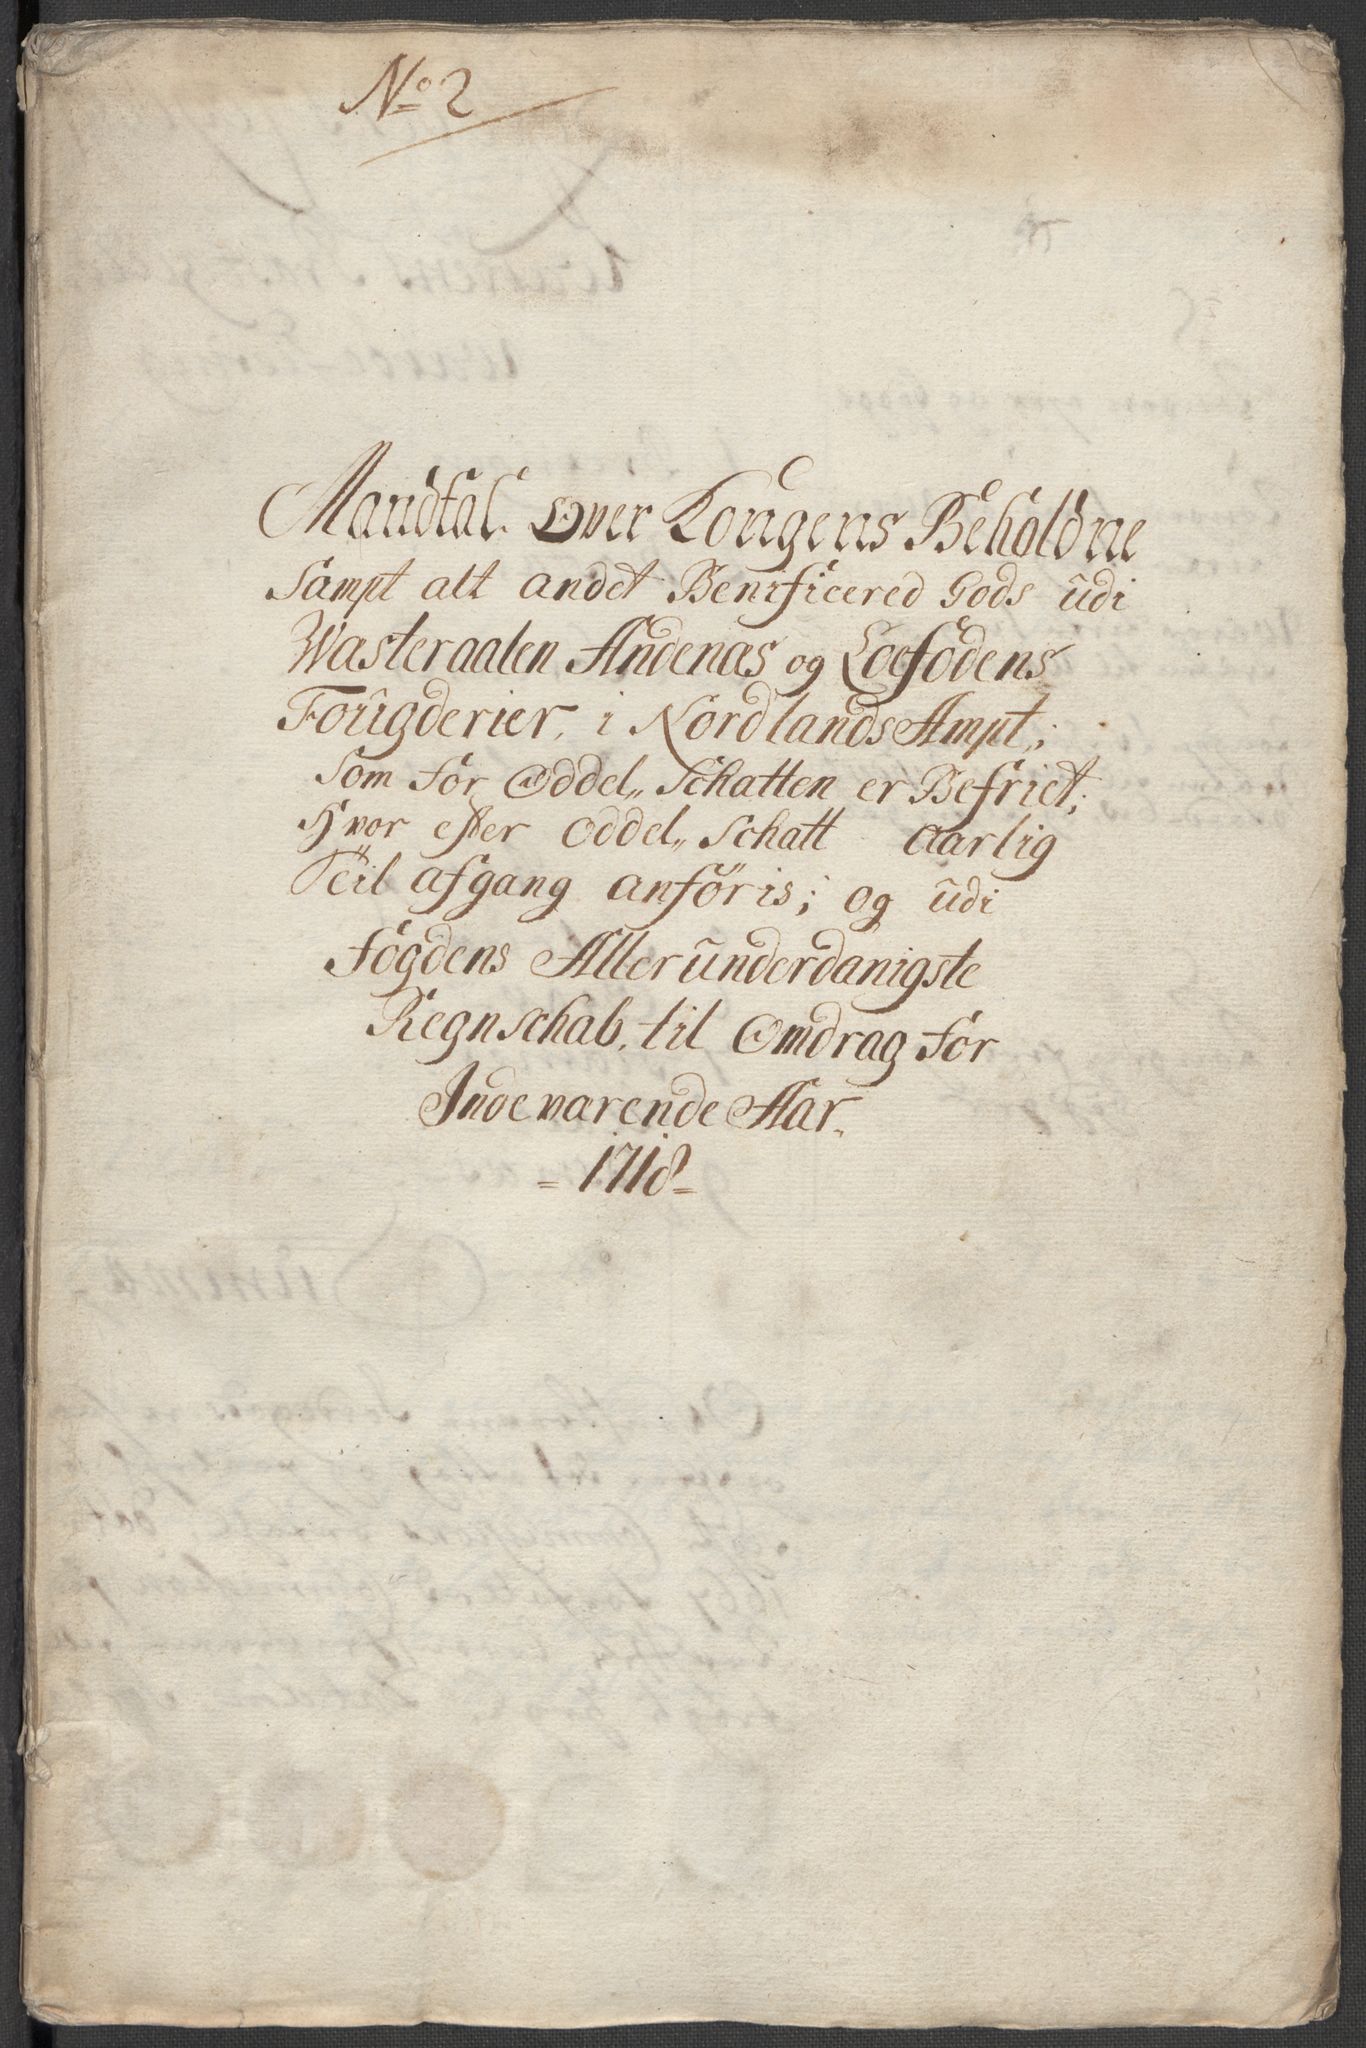 No 2
Mandtal Over Kongens Beholdne
Sampt alt andet Benificered Gods udi
Wasteraalen Andenas og Loefodens
Fougderier, i Nordlands Ampt;
Som for Oddel„ Schatten er Befriet;
Hvor efter Oddel„ Schatt Aarlig
Til afgang anföris; og udi
Fogdens Allerunderdanigste
Regnschab, til Omdrag for
Indevarende Aar.
= 1718 =